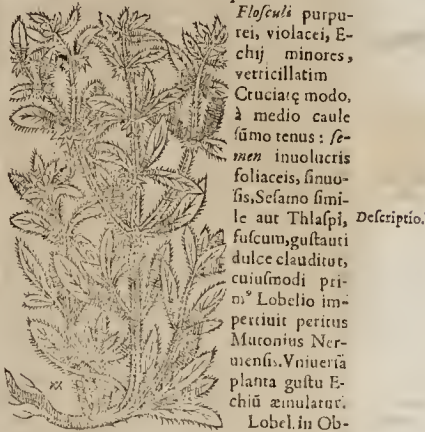 Floſculi purpu-
rei, violacei, E-
chij minores,
verticillatim
Cruciatę modo,
à medio caule
ſūmo tenus : ſe-
men inuolucris
foliaceis, ſinuo-
ſis, Seſamo ſimi-
le aut Thlaſpi,
Deſcriptio.
fuſcum, guſtauti
dulce clauditur,
cuiuſmodi pri-
mꝰ Lobelio im-
pertiuit peritus
Mutonius Ner-
uienſis. Vniuerſa
planta guſtu E-
chiū æmulatur.
Lobel. in Ob-